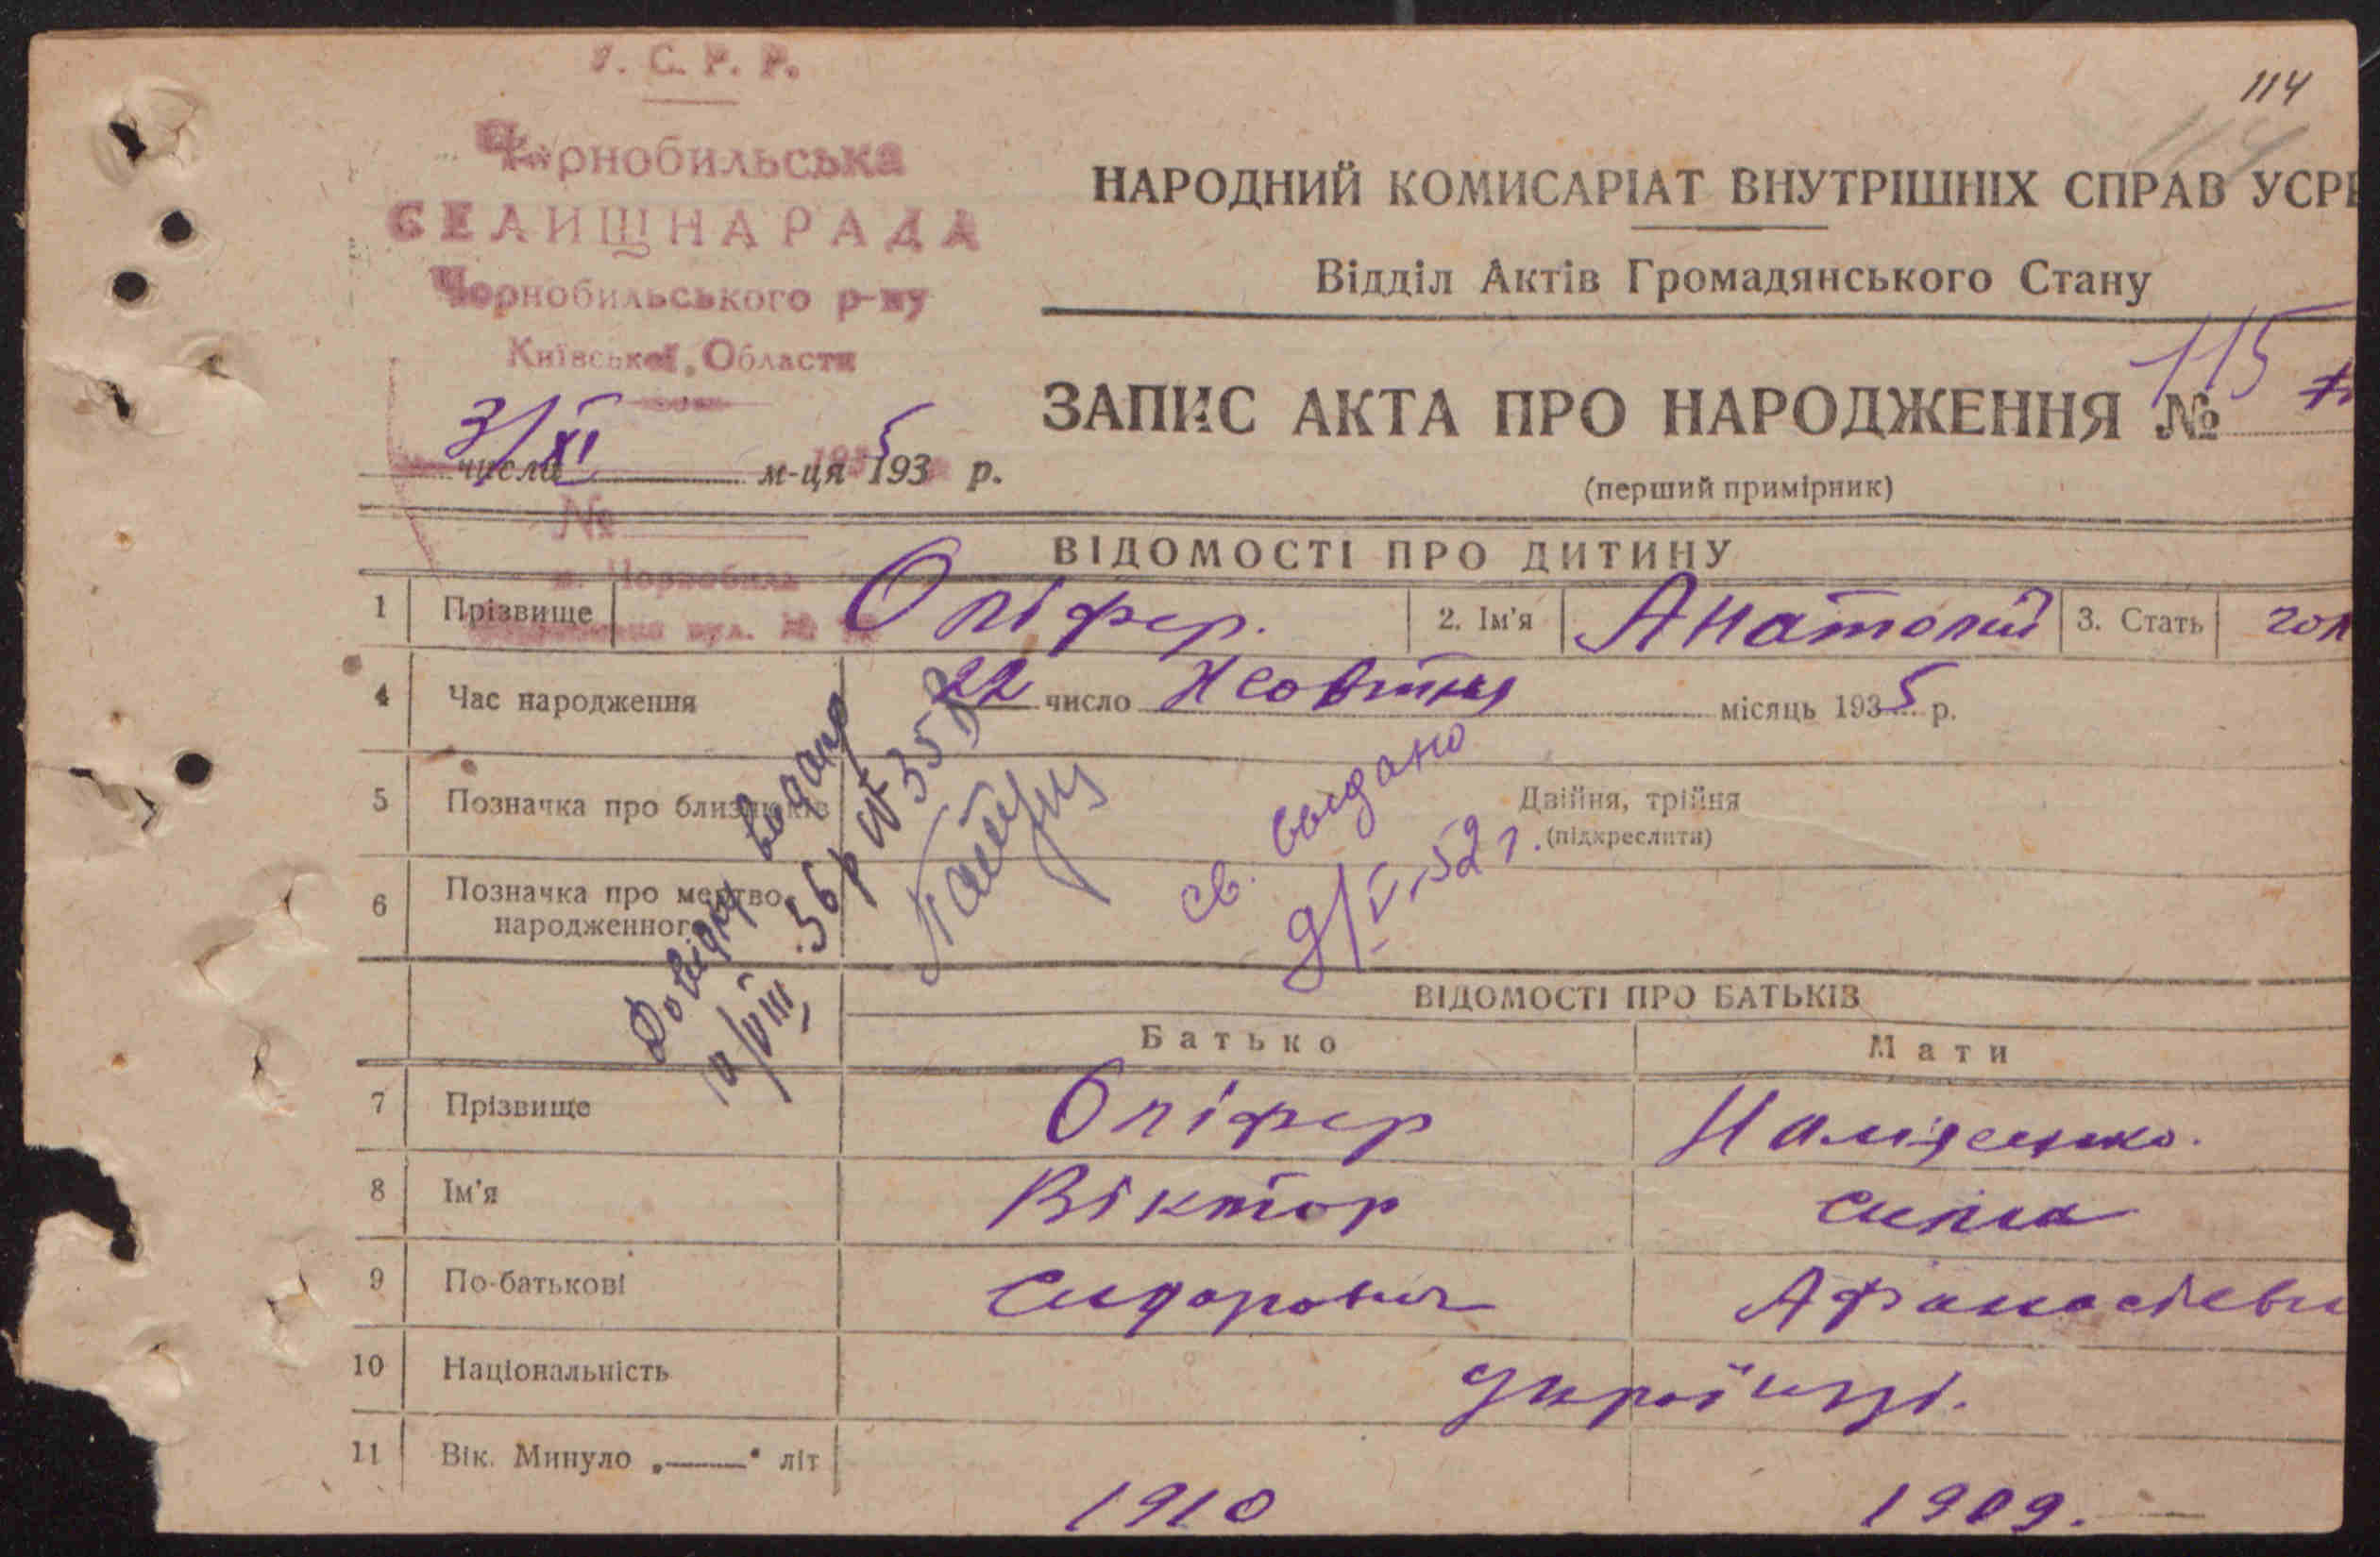 У. С. Р. Р.
Чорнобильська
СЕЛИЩНА РАДА
Чорнобильського р-ну
Київської Области
3/XI
числа м-ця 1935 р.
№
м. Чорнобиль
вул. №
114
114
НАРОДНИЙ КОМИСАРІАТ ВНУТРІШНІХ СПРАВ УСРР
Відділ Актів Громадянського Стану
ЗАПИС АКТА ПРО НАРОДЖЕННЯ № 115
(перший примірник)
ВІДОМОСТІ ПРО ДИТИНУ
1 Прізвище Оліфер. 2. Ім'я Анатолий 3. Стать чол
4 Час народження 22 число Жовтня місяць 1935 р.
5 Позначка про близнюків Двійня, трійня
(підкреслити)
6 Позначка про мертво
народженного
Довідку видано
10/VIII 56 р № 358
св. выдано
9/V-52 г.
ВІДОМОСТІ ПРО БАТЬКІВ
Батько Мати
7 Прізвище Оліфер
8 Ім'я Віктор
9 По-батькові Сидорович Афанасіевн
10 Національність Українці.
11 Вік. Минуло „——" літ 1910 1909.